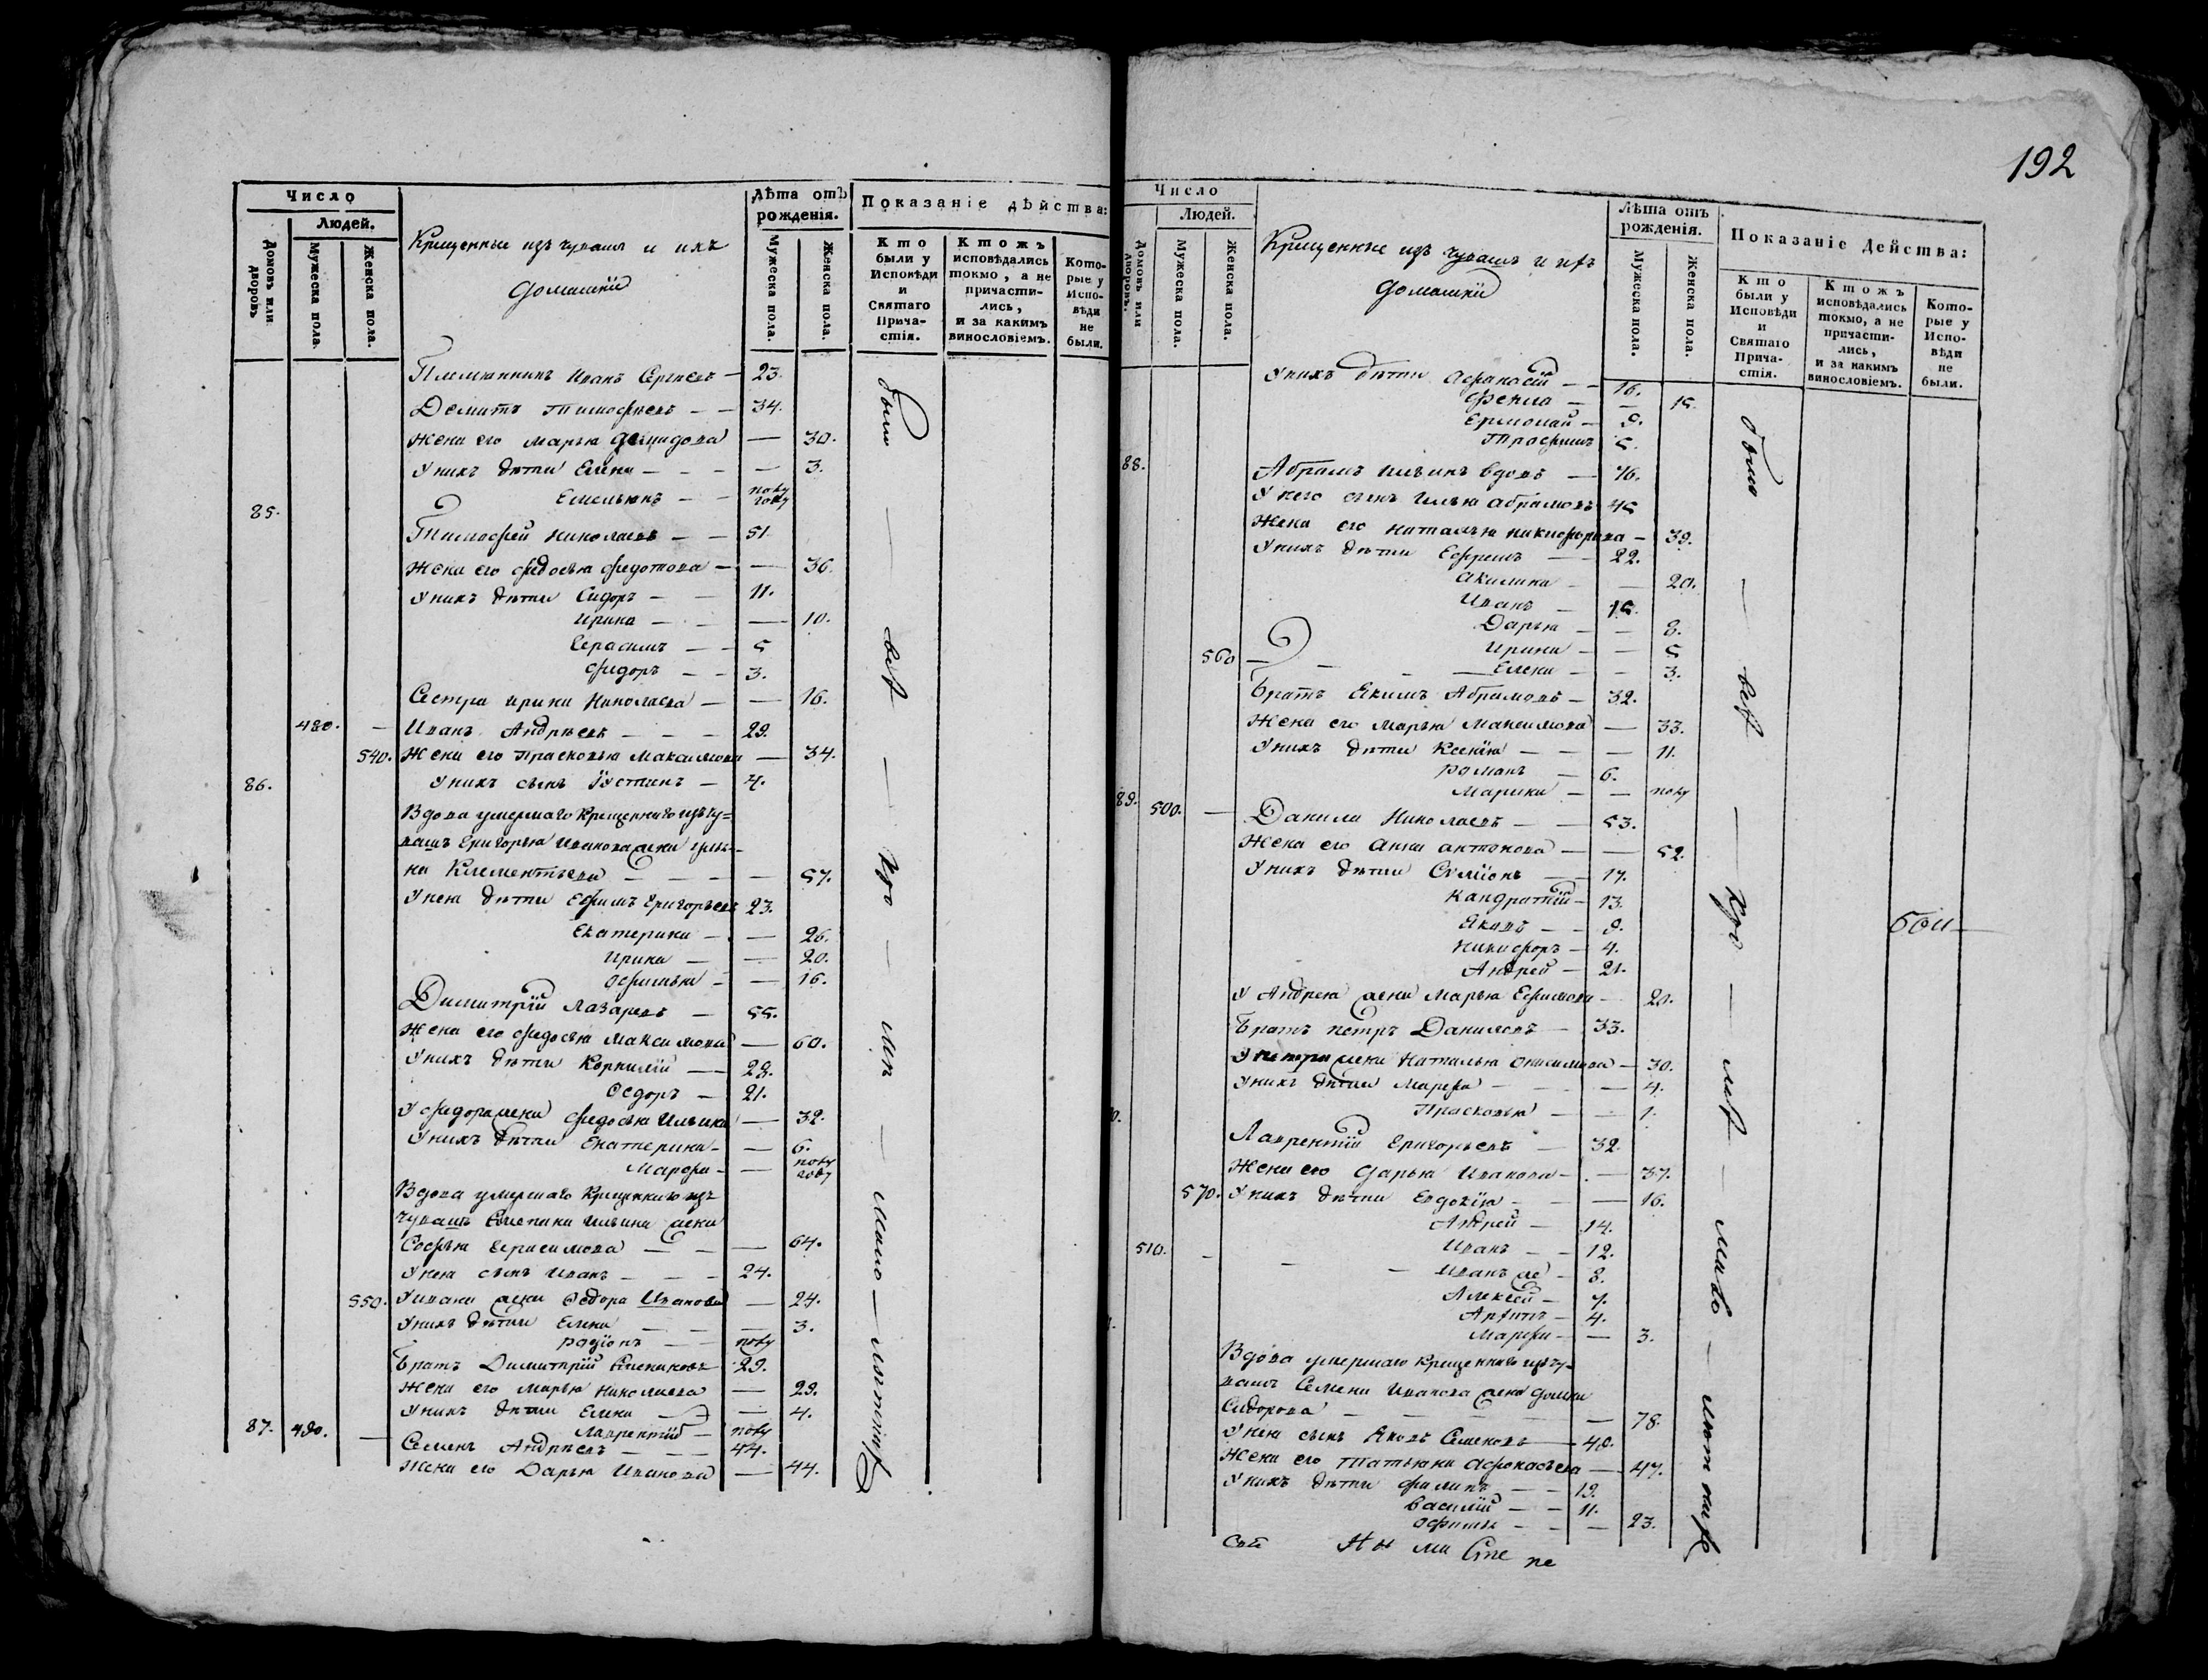 192
Число
Людей.
Домовъ или дворовъ
Мужеска пола.
Женска пола.
Крещенные изъ чувашъ и ихъ
домашнiи
Лѣта отъ
рожденiя.
Мужеска пола.
Женска пола.
Показанiе дѣйства:
Кто
были у
Исповѣди
и
Святаго
Прича-
стiя.
Ктожъ
исповѣдались
токмо, а не
причасти-
лись,
и за какимъ
винословiемъ.
Кото-
рые у
Испо-
вѣди
не
были.
Племянникъ Иванъ Сергѣевъ — 23.
Демитъ Тимофѣевъ — — 34.
Жена его Марья Демидова — 30.
У нихъ дѣти Елена — — — 3.
Емельянъ — — полу году
85.
Тимофей Николаевъ — — 51
Жена его Федосья Федотова — — 36.
У нихъ дѣти Сидоръ — — 11.
Ирина — — — 10.
Герасимъ — — 5
Федоръ — — 3.
Сестра Ирина Николаева — — 16.
480. — Иванъ Андрѣевъ — — — 29.
540. Жена его Прасковья Максимова — 34.
86. У нихъ сынъ Густинъ — 4.
Вдова умершаго Крещеннаго изъ чу=
вашъ Григорья Иванова жена Улья-
на Климентьева — — — — 57.
У нея дѣти Ефимъ Григорьевъ 23.
Екатерина — — 26.
Ирина — — 20.
Офимья — — 16.
Димитрiй Лазаревъ — 55.
Жена его Федосья Максимова — 60.
У нихъ дѣти Корнилiй — 28.
Федоръ — 21.
У Федора жена Федосья Ильина — 32.
У нихъ дѣти Екатерина — — 6.
Марфа — — полу году
Вдова умершаго Крещеннаго изъ
чувашъ Семена Ильина жена
Софья Герасимова — — — 64.
У нея сынъ Иванъ — — — 24.
550. У Ивана жена Федора Иванова — 24.
У нихъ дѣти Елена — — — 3.
Родiонъ — — полу
Братъ Димитрiй 29.
Жена его Марья Николаева — 29.
У нихъ дѣти Елена — — 4.
Лаврентiй — полу
87. 490. — Семенъ Андрѣевъ — — — 44.
Жена его Дарья Иванова — 44.
были — всѣ —
Число
Людей.
Домовъ или дворовъ.
Мужеска пола.
Женска пола.
Крещенные изъ чувашъ и ихъ
домашнiи
Лѣта отъ
рожденiя.
Мужеска пола.
Женска пола.
Показанiе Дѣйства:
Кто
были у
Исповѣди
и
Святаго
Прича-
стiя.
Ктожъ
исповѣдались
токмо, а не
причасти-
лись,
и за какимъ
винословiемъ.
Кото-
рые у
Испо-
вѣди
не
были.
У нихъ дѣти Афанасiй — — 16.
Фекла — — 15.
Ермолай — 9.
Трофимъ 5.
88.
Абрамъ Ильинъ вдовъ — 76.
У него сынъ Илья Абрамовъ 45
Жена его Наталья Никифорова — 39.
У нихъ дѣти Ефремъ — — 22.
Акилина — — 20.
Иванъ — 15.
Дарья — — 8.
Ирина — — 5
560 — — — Елена — — 3.
Братъ Екимъ Абрамовъ — 32.
Жена его Марья Максимова — 33.
У нихъ дѣти Ксенiя — — — 11.
Романъ — 6.
Марина — — полу
89. 500. — Данила Николаевъ — — 53.
Жена его Анна Антонова — — 52.
У нихъ дѣти Семiонъ — — 17.
Кандратiй — 13.
Яковъ — — 9.
Никифоръ — 4.
Андрей — 21.
У Андрея жена Марья Ефимова — 20.
Братъ Петръ Даниловъ — 33.
У Петра жена Наталья Онисимова — 30.
У нихъ дѣти Марфа — — 4.
Прасковья — — 1.
Лаврентiй Григорьевъ — 32.
Жена его Дарья Иванова — — 37.
570. У нихъ дѣти Евдокiя — — 16.
Андрей — 14.
510. — Иванъ — — 12.
— — Иванъ же — 8.
Алексей — 7.
Антипъ — 4.
Марфа — — 3.
Вдова умершаго Крещеннаго изъ чу-
вашъ Семена Иванова жена Домна
Сидорова — — — — — 78.
У нея сынъ Яковъ Семеновъ — 40.
Жена его Татьяна Афонасьева — 47.
У нихъ дѣти Филипъ — — 19.
Василiй — — 11.
Офимья — — — 23.
были — всѣ —